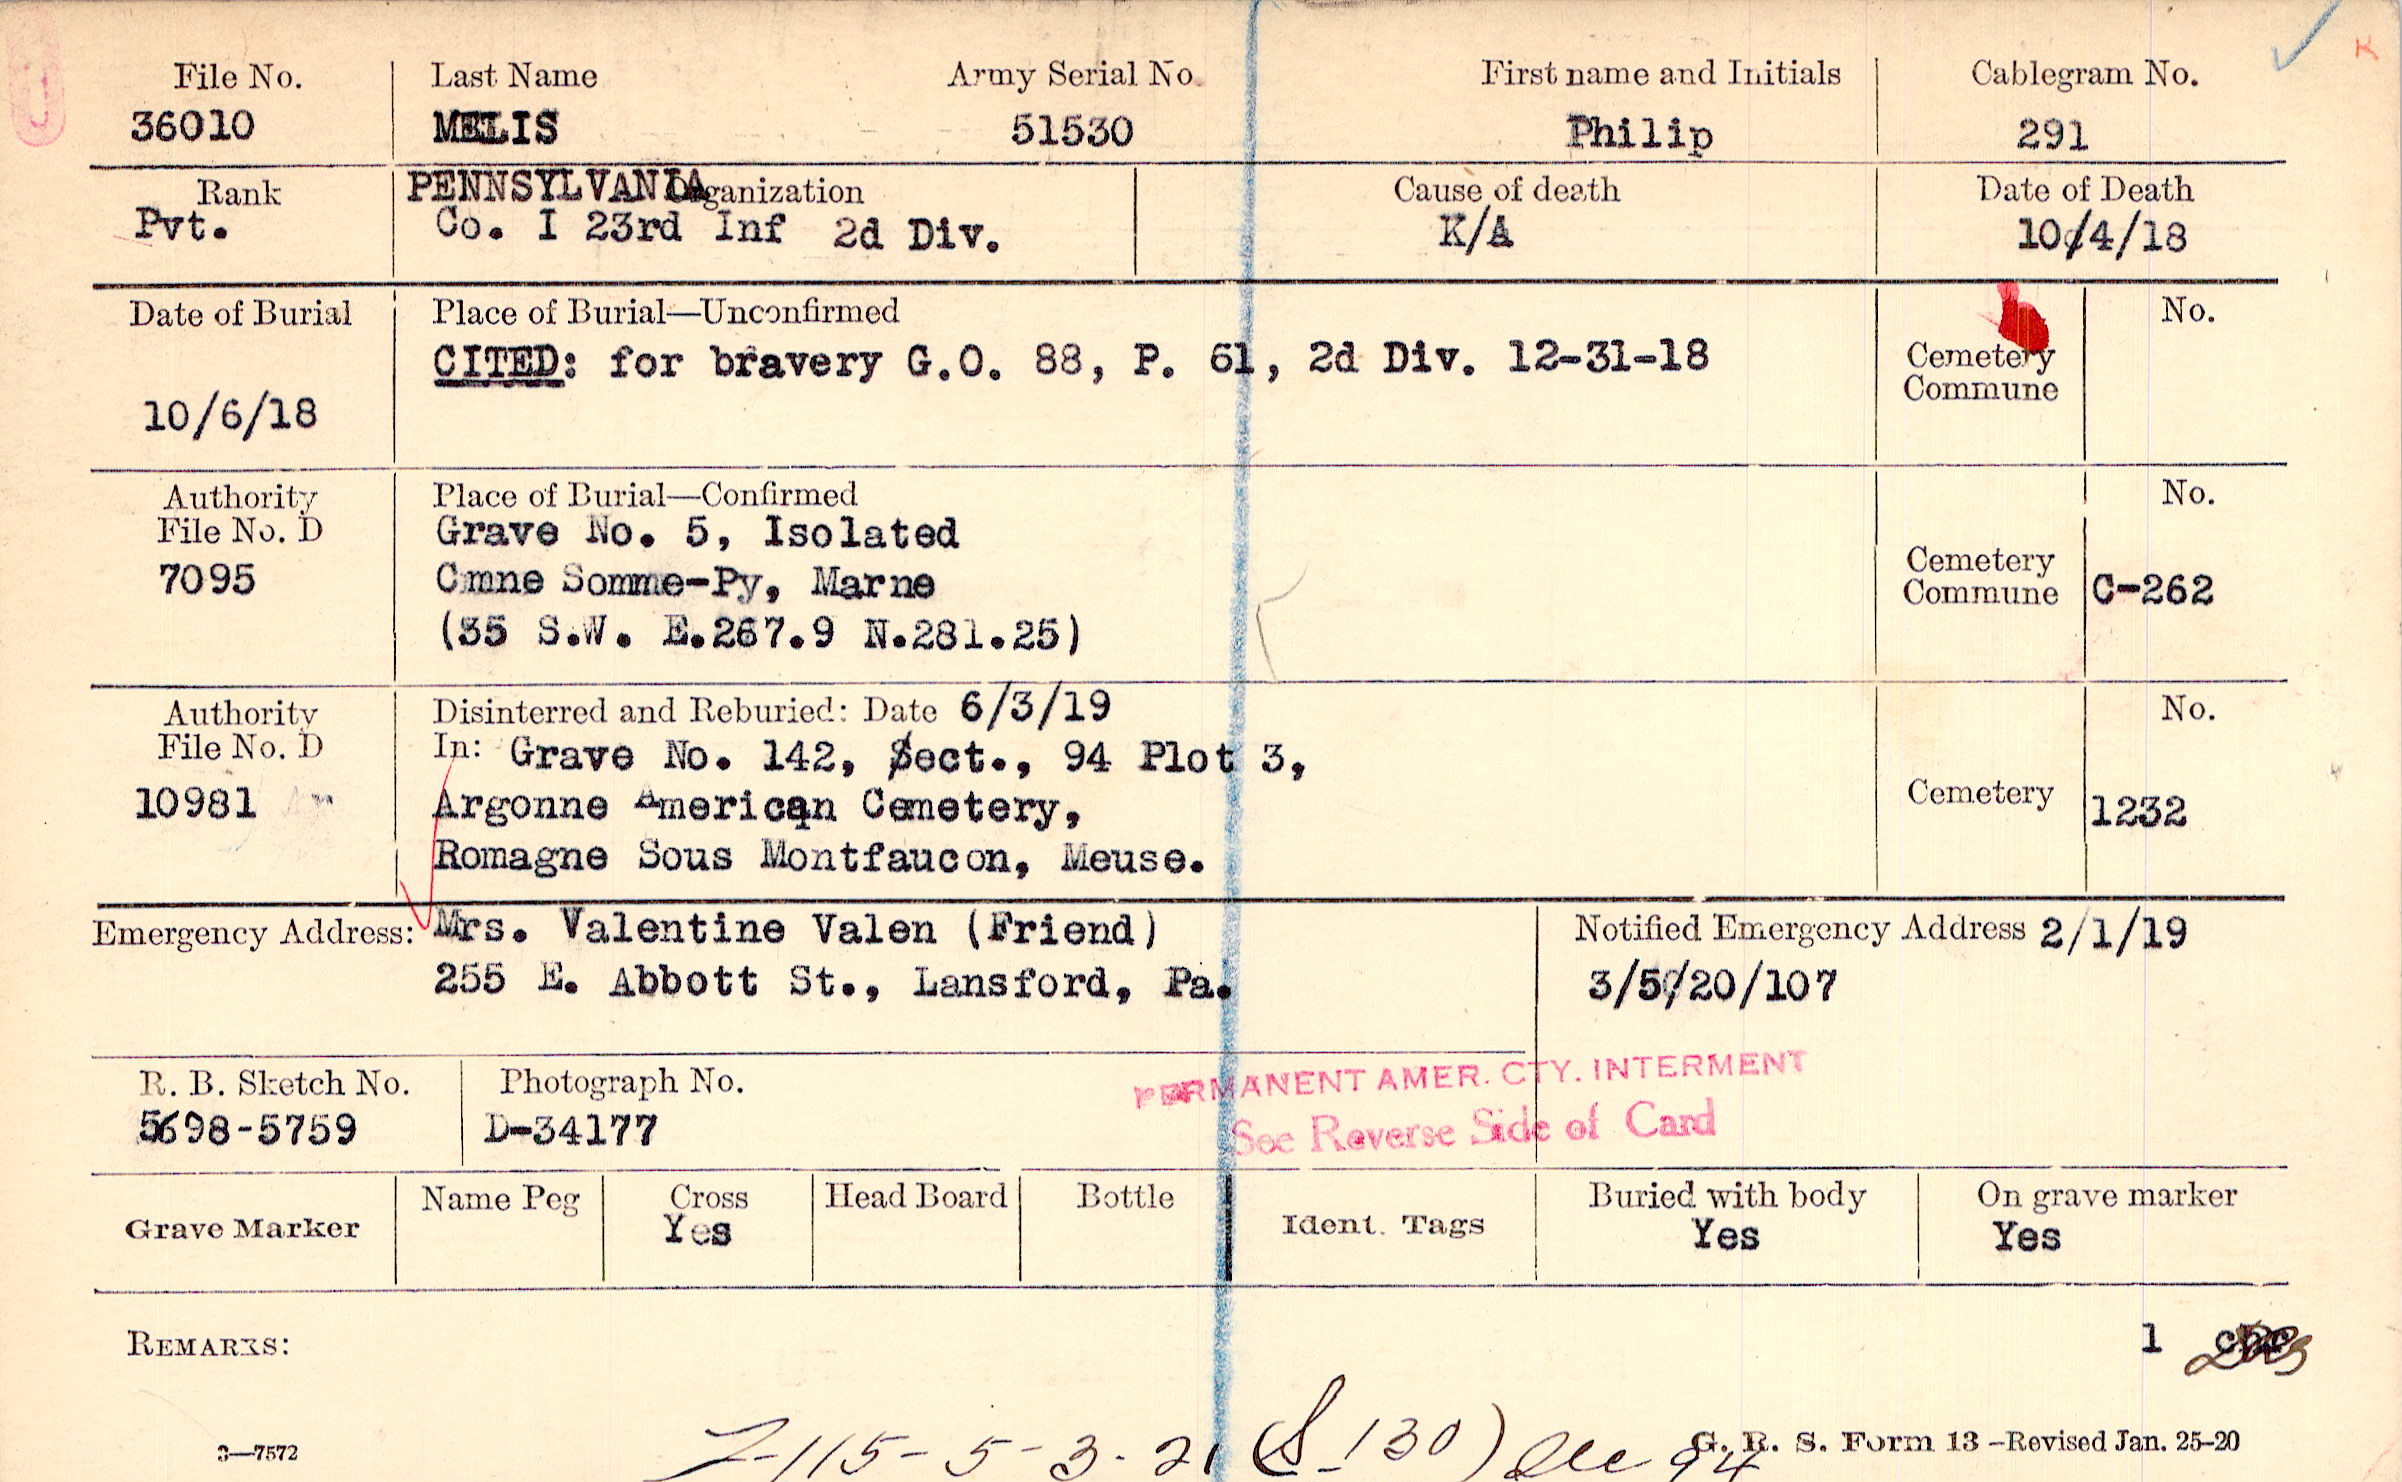 File No. Last Name Army Serial No. First name and Initials Cablegram No.
36010 MELIS 51530 Philip 291
Rank PENNSYLVANIA Organization Cause of death Date of Death
Pvt. Co. I 23rd Inf 2d Div. K/A 10/4/18
Date of Burial Place of Burial—Unconfirmed No.
CITED: for bravery G.O. 88, P. 61, 2d Div. 12-31-18 Cemetery
Commune
10/6/18
Authority Place of Burial—Confirmed No.
File No. D Grave No. 5, Isolated
7095 Cmne Somme-Py, Marne Cemetery
Commune C-262
(35 S.W. E.267.9 N.281.25)
Authority Disinterred and Reburied: Date 6/3/19 No.
File No. D In: Grave No. 142, Sect., 94 Plot 3,
10981 Argonne American Cemetery, Cemetery 1232
Romagne Sous Montfaucon, Meuse.
Emergency Address: Mrs. Valentine Valen (Friend) Notified Emergency Address 2/1/19
255 E. Abbott St., Lansford, Pa. 3/5/20/107
R. B. Sketch No. Photograph No. PERMANENT AMER. CTY. INTERMENT
5698-5759 D-34177 See Reverse Side of Card
Grave Marker Name Peg Cross Head Board Bottle Ident. Tags Buried with body On grave marker
Yes Yes Yes
REMARKS: 1
3—7572 115-5-3-21 (S-130) G. R. S. Form 13—Revised Jan. 25-20